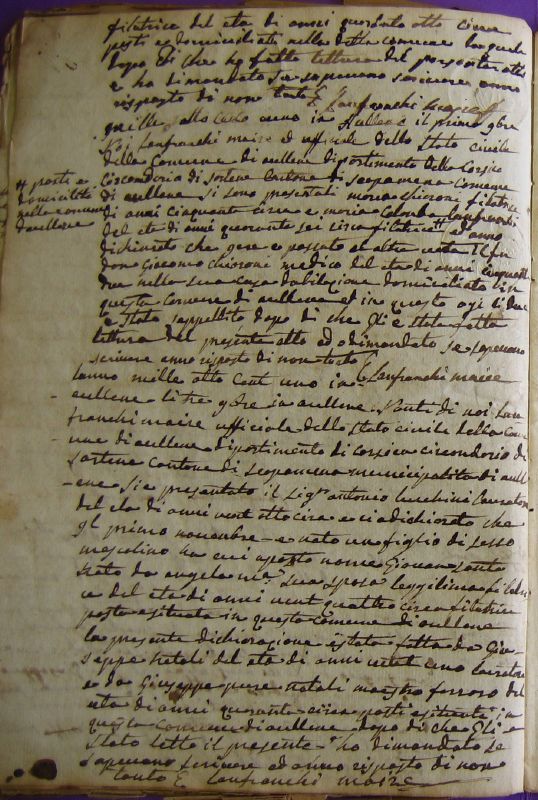 filatrice del eta di anni quaranta otto circa
posti e domiciliati nella detta comune
dopo di che ho fatto lettura del presente atto
e ha dimandato se sapevano scrivere anno
risposto di non tanto E Lanfranchi maire
mille otto cento uno in Aullene il primo 9bre
Noi Lanfranchi maire ed ufficiale dello stato civile
della Comune di aullene dipartimento della Corsica
Circondario di sartene Cantone di scopamena Comune
di aullene si sono presentati maria chiaroni filatrice
di anni cinquanta circa e maria Colomba Lanfranchi
del eta di anni quaranta sei circa filatrice # ed anno
# posti e
domiciliti
nella comune
daullene
dichiarato che gere e passato ad altra vita il fu
don Giacomo chiaroni medico del eta di anni cinquanta
due nella sua casa dabitazione domiciliato in
questa Comune di aullene ed in questo ogi li due
e stato sappellito dopo di che Gli e stata fatta
lettura del presente atto ed o dimandato se sapevano
scrivere anno risposto di non tanto E Lanfranchi maire
lanno mille otto cent uno in
aullene li tre 9bre in aullene. Avanti di noi Lan
franchi maire ufficiale dello stato civile della Comu
ne di aullene dipartimento di corsica circondario di
sartene cantone di scopamena municipalita di aull
ene si e presentato il sigr antonio lucchini Lavratore
del eta di anni vent otto circa e ci a dichiarato che
gl primo novembre e nato un figlio di sesso
mascolino ha cui aposto nome Giovan santo
nato da angela ma sua sposa leggitima filatri
ce del eta di anni vent quattro circa filatrice
posta e situata in questa comune di aullene
la presente dichiarazione e stata fatta da Giu-
seppe natali del eta di anni uno lavratore
e da Giuseppe pure natali maestro ferraro del
eta di anni quaranta circa posti e situati in
questa Comune di aullene dopo di che Gli e
stato letto il presente ho dimandato se
sapevano scrivere ed anno risposto di non
tanto E Lanfranchi maire